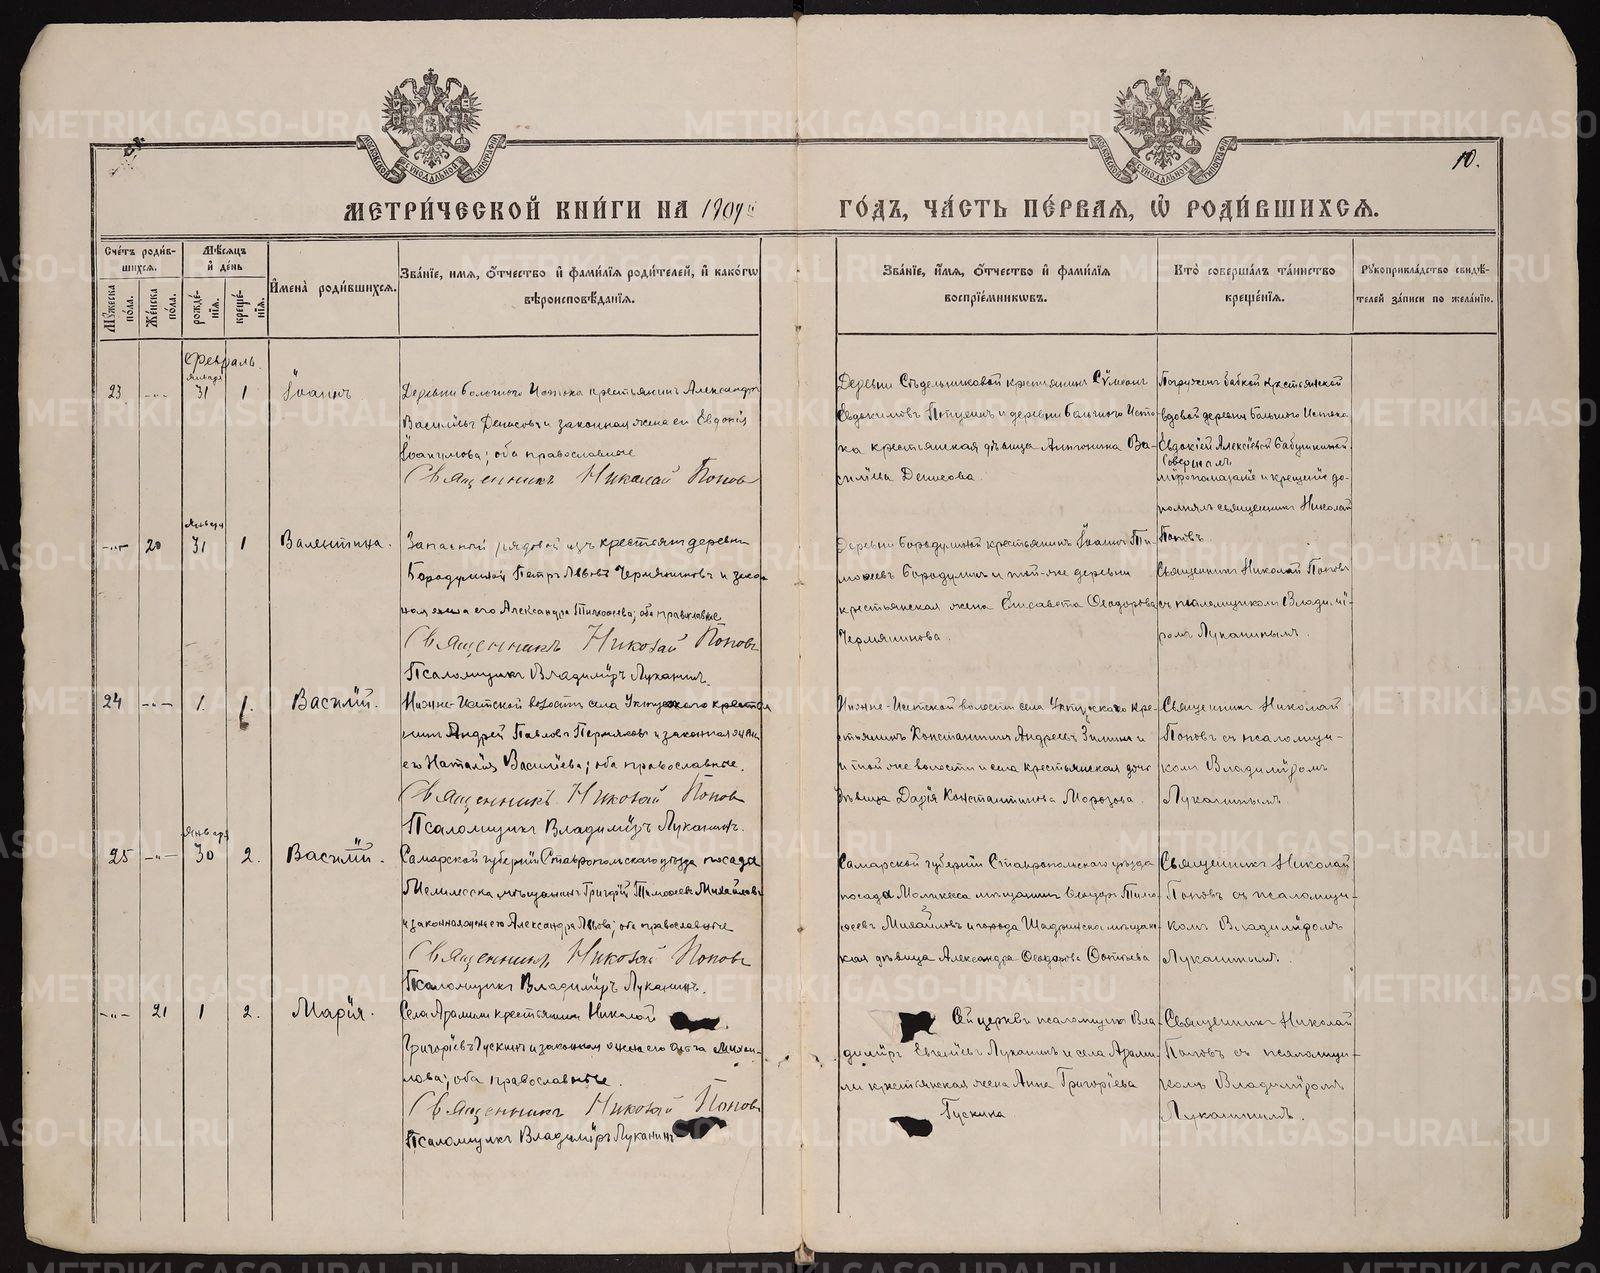 METRIKI.GASO-URAL.RU
МОСКОВСКОЙ СУНОДАЛЬНОЙ ТИПОГРАФІИ
МОСКОВСКОЙ СУНОДАЛЬНОЙ ТИПОГРАФІИ
10.
МЕТРИ́ЧЕСКОЙ КНИ́ГИ НА 1909й
ГО́ДЪ, ЧА́СТЬ ПЕ́РВАЯ, Ѡ҆ РОДИ́ВШИХСЯ.
Сче́тъ роди́в-
шихся.
Му́жеска по́ла.
Же́нска по́ла.
Мѣ́сяцъ
и҆ де́нь
рожде́-
нїя.
креще́-
нїя.
И҆мена̀ роди́вшихся.
Зва́нїе, и҆мя, ѻ҆́тчество и҆ фами́лїя роди́телей, и҆ како́гѡ
вѣроисповѣ́данїя.
Зва́нїе, и҆́мя, ѻ҆́тчество и҆ фами́лїя
воспрїе́мникѡвъ.
Кто̀ соверша́лъ та́инство
креще́нїя.
Рꙋкоприкла́дство свидѣ́-
телей за́писи по жела́нїю.
Февраль.
января
23 -"- 31 1 Іоаннъ
Деревни большого Истока крестьянинъ Александръ
Васильевъ Денисовъ и законная жена его Евдокія
Іоакимова; оба православные
Священникъ Николай Поповъ
Деревни Сѣдельниковой крестьянинъ Сѵмеонъ
Евдокимовъ и деревни большого Исто-
ка крестьянская дѣвица Антонина Ва-
сильева Денисова.
Погруженъ бабкой крестьянской
вдовой деревни Большого Истока
Евдокіей Алексѣевой Бабушкиной.
Совершалъ
мѵропомазаніе и крещеніе до-
полнялъ священникъ Николай
Поповъ.
января
-"- 20 31 1 Валентина.
Запасный рядовой изъ крестьянъ деревни
Бородулиной Петръ Львовъ Чермяниновъ и закон
ная жена его Александра Тимофеева; оба православные
Священникъ Николай Поповъ
Псаломщикъ Владиміръ Луканинъ.
Деревни Бородулиной крестьянинъ Іоаннъ Ти-
мофеевъ Бородулинъ и той-же деревни
крестьянская жена Елисавета Ѳеодорова
Чермянинова.
Священникъ Николай Поповъ
съ псаломщикомъ Владимі-
ромъ Луканинымъ.
24 -"- 1. 1. Василій.
Нижне-Исетской волости села Уктусского крестья
нинъ Андрей Павловъ Пермяковъ и законная жена
его Наталія Васильева; оба православные.
Священникъ Николай Поповъ
Псаломщикъ Владиміръ Луканинъ.
Нижне-Исетской волости села Уктусского кре-
стьянинъ Константинъ Андреевъ Зилинъ и
и той же волости и села крестьянская дочь
дѣвица Дарія Константинова Морозова.
Священникъ Николай
Поповъ съ псаломщи-
комъ Владиміромъ
Луканинымъ.
января
25 -"- 30 2. Василій.
Самарской губерніи Ставропольскаго уѣзда посада
Мелекесса мѣщанинъ Григорій Тимофеевъ Михайловъ
и законная жена его Александра Львова; оба православные
Священникъ Николай Поповъ
Псаломщикъ Владиміръ Луканинъ.
Самарской губерніи Ставропольскаго уѣзда
посада Мелекесса мѣщанинъ Ѳеодоръ Тимо-
феевъ Михайловъ и города Шадринска мѣщан-
ская дѣвица Александра Ѳеодорова
Священникъ Николай
Поповъ съ псаломщи-
комъ Владиміромъ
Луканинымъ.
-"- 21 1 2. Марія.
Села Арамили крестьянинъ Николай
Григорьевъ Гускинъ и законная жена его Ольга Михаи-
лова; оба православные.
Священникъ Николай Поповъ
Псаломщикъ Владиміръ Луканинъ
Сей церкви псаломщикъ Вла-
диміръ Евгеніевъ Луканинъ и села Арами-
ли крестьянская жена Анна Григоріева
Гускина
Священникъ Николай
Поповъ съ псаломщи-
комъ Владиміромъ
Луканинымъ.